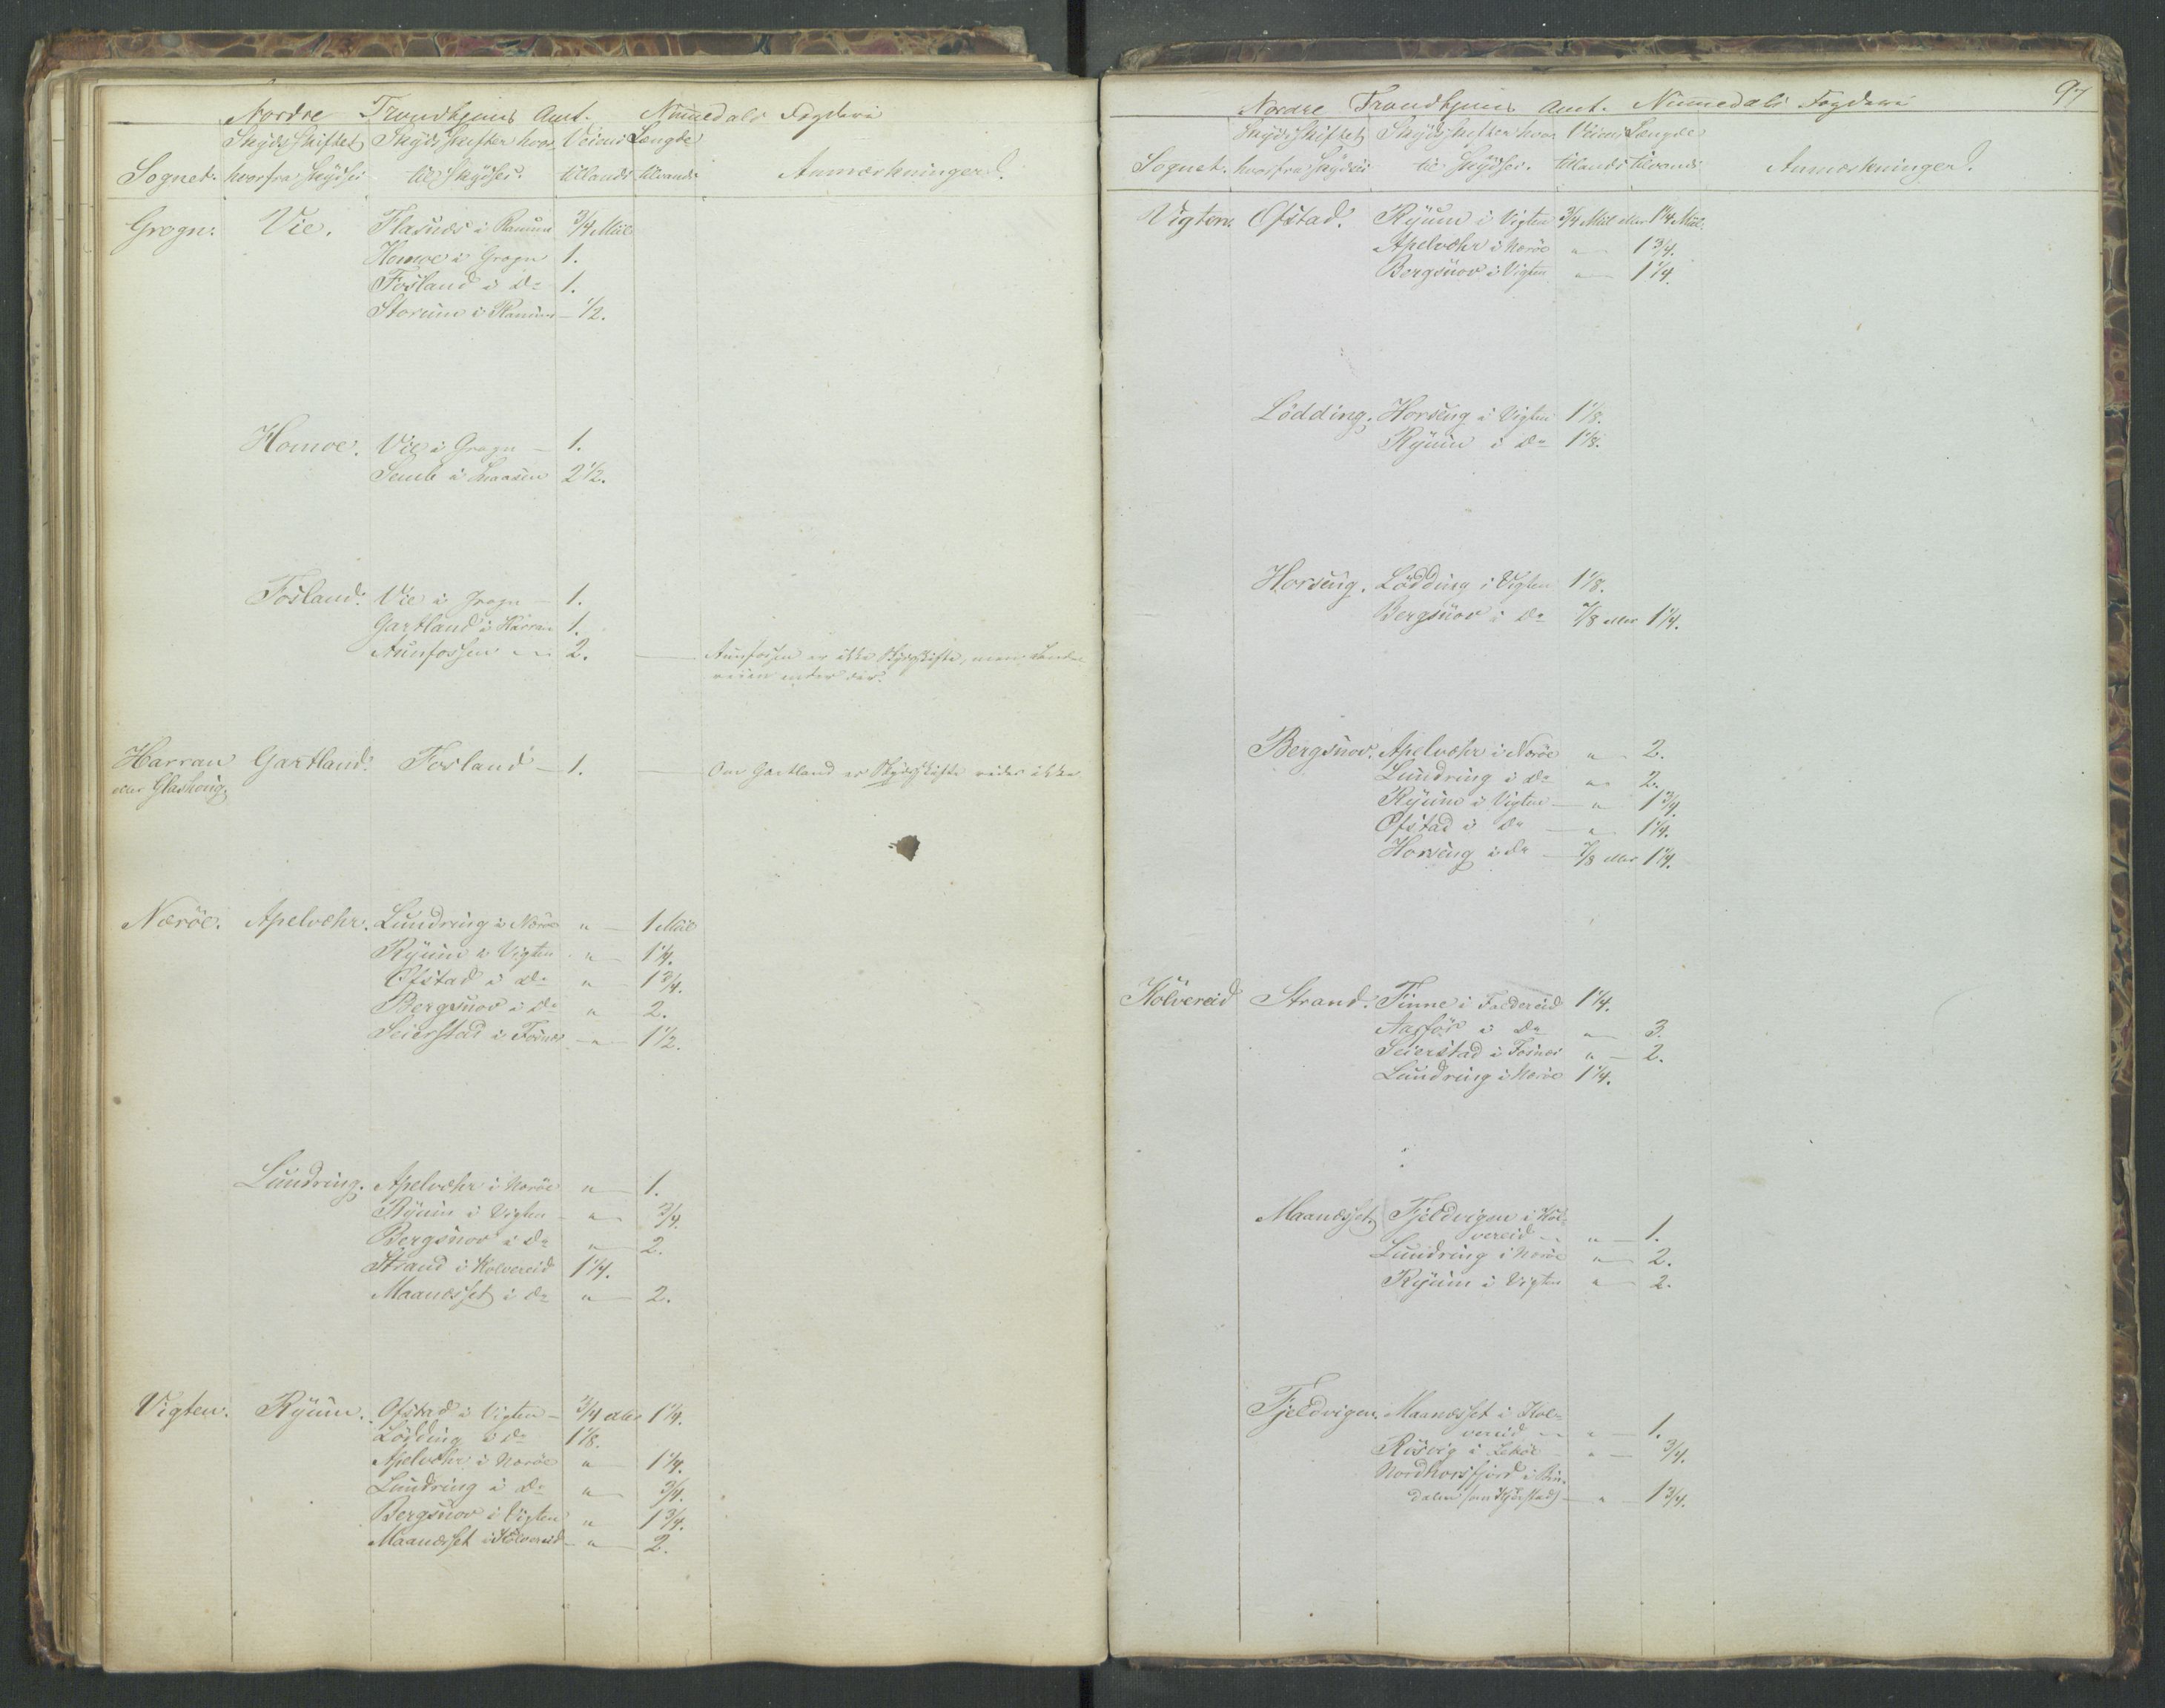 Nordre Trondhjems Amt. Nummedals Fogderi
Skydsskiftet Skydsskifter hvor Veiens Længde
Sognet. hvorfra Skydses til Skydses. tillands tilvands Anmærkninger.
Grogn. Vie. Flasnæs i Ranum 3/4 Miil
Homoe i Grogn 1.
Fosland i Do 1.
Storum i Ranum — 1/2.
Homoe. Vie i Grogn — 1.
Semb i Snaasen 2 1/2.
Fosland. Vie i Grogn — 1.
Gartland i Harran 1.
Aunfossen — 2. — Aunfossen er ikke Skydsskifte, men Landeveien ender der.
Harran Gartland. Fosland — 1. — Om Gartland er Skydsskifte vides ikke
Nærøe. Apelvæhr. Lundring i Nærøe " — 1 Miil
Ryum i Vigten " — 1 1/4.
Ofstad i Do " — 1 3/4.
Bergsnov i Do " — 2.
Seierstad i Fosnæs — " — 1 1/2.
Lundring. Apelvæhr i Nærøe " — 1.
Ryum i Vigten — " — 3/4.
Bergsnov i Do " — 2.
Strand i Kolvereid 1 1/4.
Maanesset i Do " — 2.
Vigten. Ryum. Ofstad i Vigten — 3/4 eller 1 1/4.
Lödding i Do 1 1/8.
Apelvæhr i Nærøe " — 1 1/4.
Lundring i Do " — 3/4.
Bergsnov i Vigten " — 1 3/4.
Maanesset i Kolvereid — " — 2.
97
Nordre Trondhjems Amt. Nummedals Fogderi
Skydsskiftet Skydsskifter hvor Veiens Længde
Sognet. hvorfra Skydses til Skydses. tillands tilvands Anmærkninger.
Vigten. Ofstad. Ryum i Vigten 3/4 Miil eller 1 1/4 Miil.
Apelvæhr i Nærøe " — 1 3/4.
Bergsnov i Vigten " — 1 1/4.
Lödding. Horseng i Vigten 1 1/8.
Ryum i Do 1 1/8.
Horseng. Lödding i Vigten 1 1/8.
Bergsnov i Do 7/8 eller 1 1/4.
Bergsnov. Apelvæhr i Nærøe " — 2.
Lundring i Do " — 2.
Ryum i Vigten — " — 1 3/4.
Ofstad i Do — " — 1 1/4.
Horseng i Do — 7/8 eller 1 1/4.
Kolvereid Strand. Finne i Foldereid 1 1/4.
i Do " — 3.
Seierstad i Fosnes " — 2.
Lundring i Nærøe 1 1/4.
Maanesset. Fjeldvigen i Kol-
vereid — " — 1.
Lundring i Nærøe " — 2.
Ryum i Vigten " — 2.
Fjeldvigen. Maanesset i Kol-
vereid — " — 1.
Risvig i Lekøe — " — 3/4.
Nordhorsfjord i Bin-
dalen — " — 1 3/4.